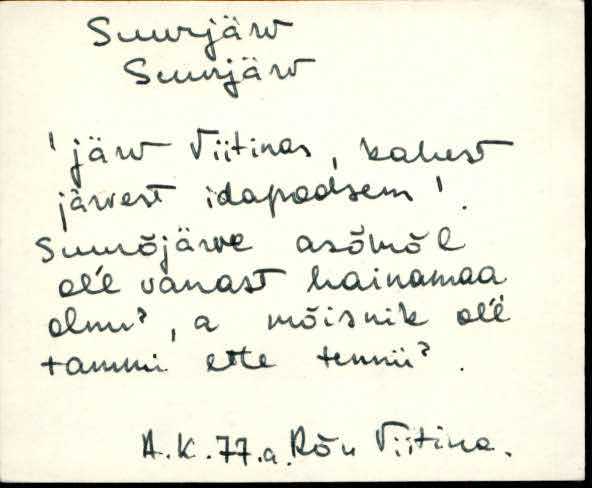 Suurjärv
Suurjärv
'järv Viitinas, kahest
järvest idapoolsem'.
Suurõjärve asõmõl
oĺĺ vanast hainamaa
olnuˀ, a mõisnik oĺĺ
tammi ette tennüˀ.
A.K. 77.a. Rõu Viitina.